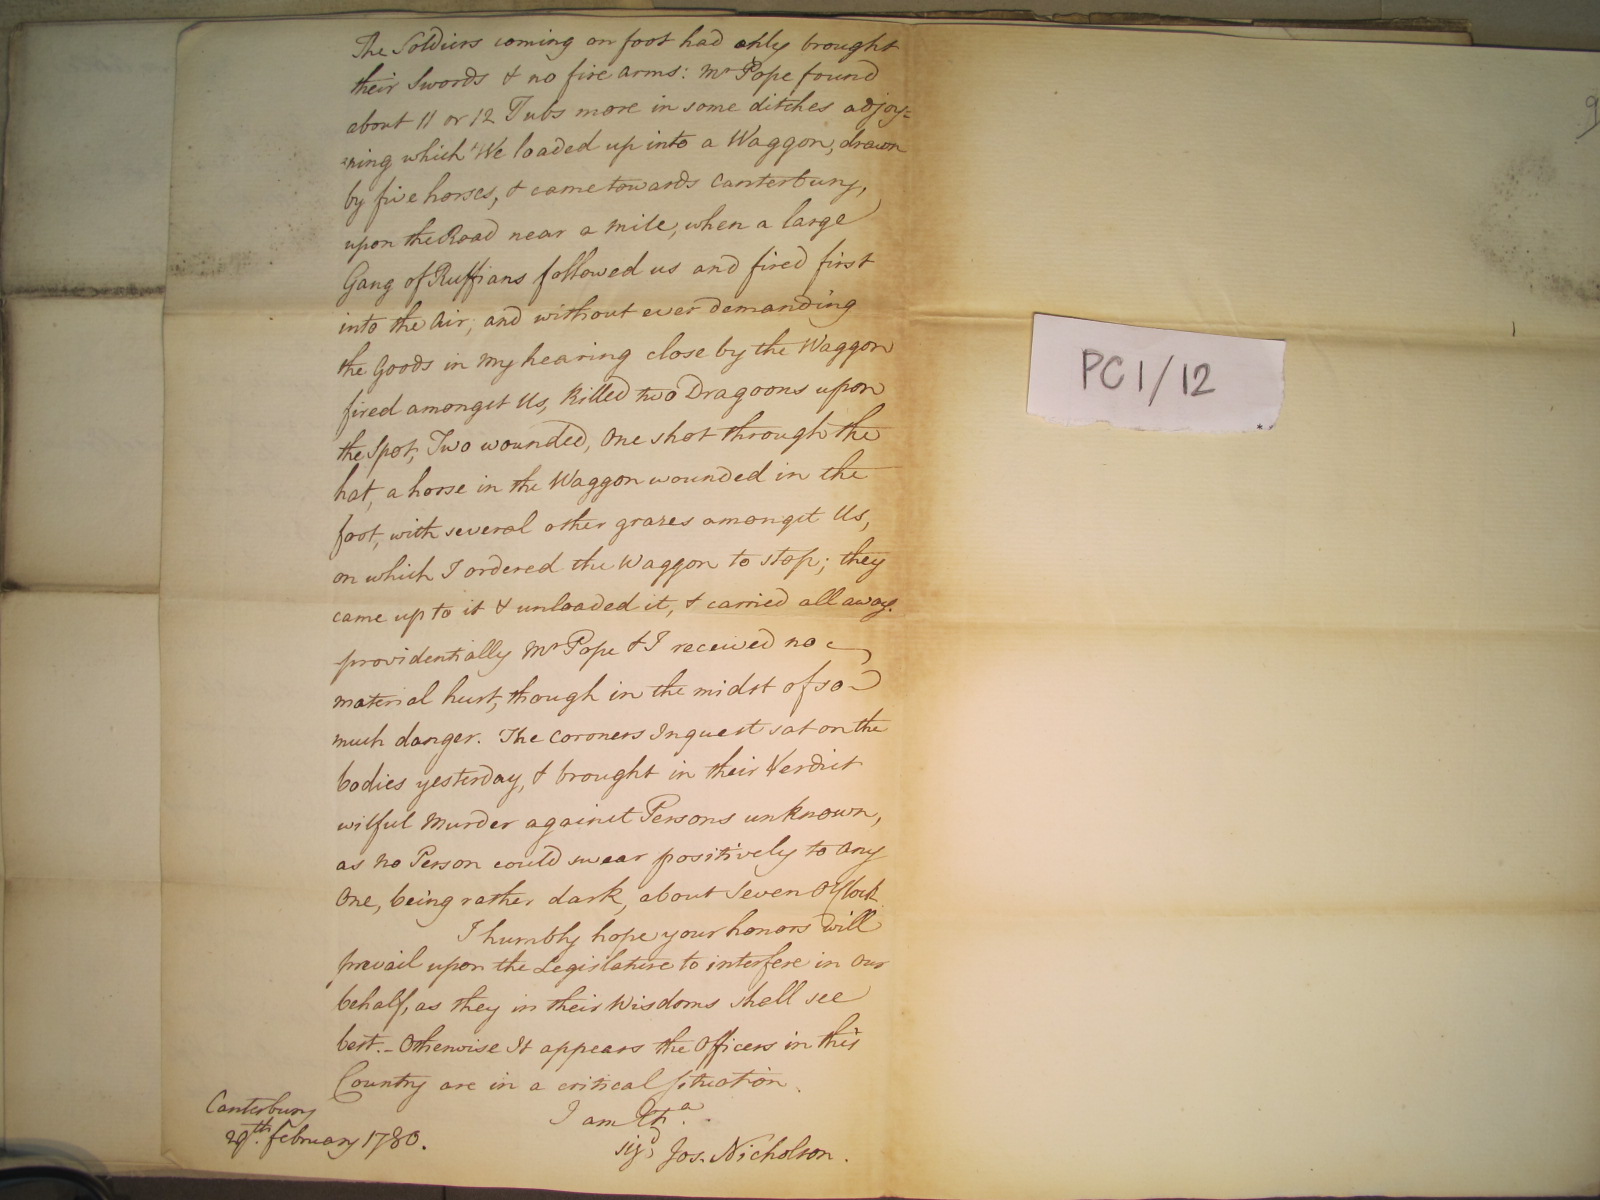 The Soldiers coming on foot had only brought
their Swords & no fire arms: Mr Pope found
about 11 or 12 Tubs more in some ditches adjoy=
=ning which We loaded up into a Waggon, drawn
by five horses, & came towards Canterbury,
upon the Road near a mile, when a large
Gang of Ruffians followed us and fired first
into the Air, and without ever demanding
the Goods in my hearing close by the Waggon
fired amongst Us, killed two Dragoons upon
the Spot, Two wounded, One shot through the
hat, a horse in the Waggon wounded in the
foot, with several other grazes amongst Us,
on which I ordered the Waggon to stop; they
came up to it & unloaded it, & carried all away.
providentially Mr Pope & I received no
material hurt, though in the midst of so
much danger. The Coroners Inquest sat on the
bodies yesterday, & brought in their Verdict
wilful Murder against Persons unknown,
as no Person could swear positively to any
One, being rather dark, about Seven O'Clock.
I humbly hope your honors will
prevail upon the Legislature to interfere in our
behalf, as they in their Wisdoms shall see
best. - Otherwise It appears the Officers in this
Country are in a critical situation.
I am &ca.
sigd Jos. Nicholson.
Canterbury
29th. February 1780.
PC1/12
9